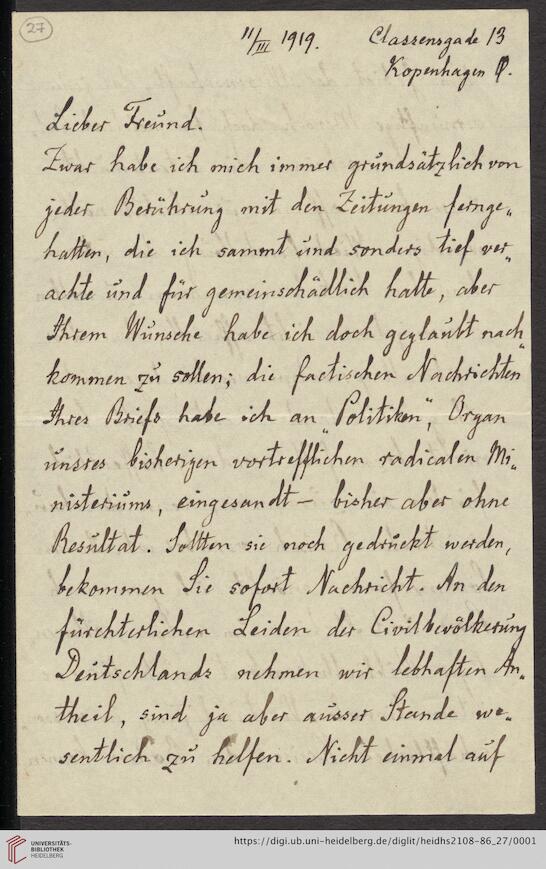 27
11/III 1919. Classensgade 13
Kopenhagen Ø.
Lieber Freund.
Zwar habe ich mich immer grundsätzlich von
jeder Berührung mit den Zeitungen fernge„
halten, die ich sammt und sonders tief ver„
achte und für gemeinschädlich halte, aber
Ihrem Wunsche habe ich doch geglaubt nach„
kommen zu sollen; die factischen Nachrichten
Ihres Briefs habe ich an „Politiken“, Organ
unsres bisherigen vortrefflichen radicalen Mi„
nisteriums, eingesandt – bisher aber ohne
Resultat. Sollten sie noch gedruckt werden,
bekommen Sie sofort Nachricht. An den
fürchterlichen Leiden der Civilbevölkerung
Deutschlands nehmen wir lebhaften An„
theil, sind ja aber ausser Stande we„
sentlich zu helfen. Nicht einmal auf
UNIVERSITÄTS-
BIBLIOTHEK
HEIDELBERG
https://digi.ub.uni-heidelberg.de/diglit/heidhs2108-86_27/0001